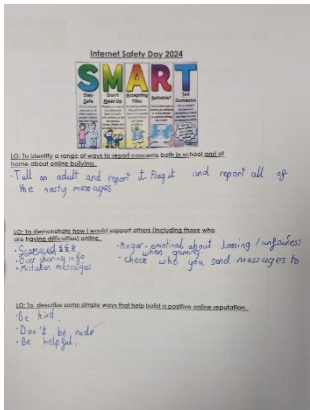 Internet Safety Day 2024
SMART
Stay Safe
Don't Meet Up
Accepting Files
Reliable?
Tell Someone
LO: To identify a range of ways to report concerns both in school and at
home about online bullying.
• Tell an adult and report it Flag it and report all of
the nasty messages
LO: To demonstrate how I would support others (including those who
are having difficulties) online.
• Scammed £££
• Over sharing info
• Mistaken messages
• Anger - emotional about loosing / unfairness
when gaming.
• check who you send massages to
LO: To describe some simple ways that help build a positive online reputation.
• Be kind
• Don't be rude
• Be helpful